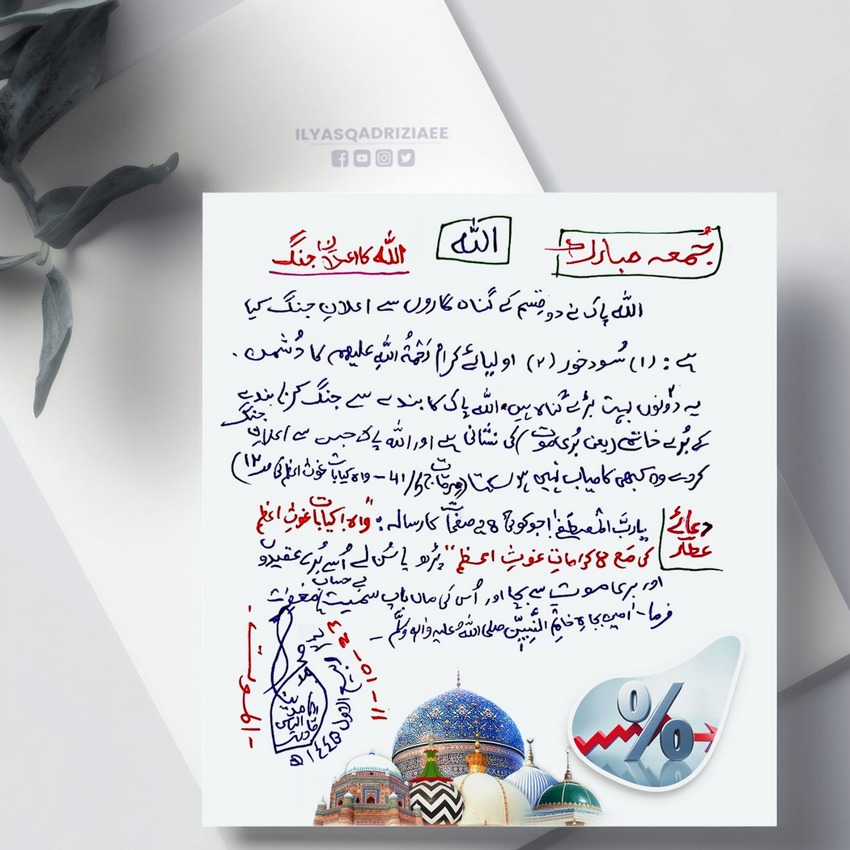 ILYASQADRIZIAEE
جُمعہ مبارک
اللہ
اللہ کا اعلانِ جنگ
اللہ پاک نے دو قِسم کے گناہ گاروں سے اعلانِ جنگ کیا
ہے : (۱) سُود خور (۲) اولیائے کرام رَحْمَۃُ اللہِ علیھم کا دُشمن .
یہ دونوں بہت بڑے گناہ ہیں، اللہ پاک کا بندے سے جنگ کرنا بندے
کے بُرے خاتمے (یعنی بُری موت) کی نشانی ہے اور اللہ پاک جس سے اعلانِ جنگ
کردے وہ کبھی کامیاب نہیں ہو سکتا (مرقات ج ۵/ 41 - واہ کیا بات غوثِ اعظم کی ص ۱۲)
دعائے عطار
یا ربَّ المصطفےٰ! جو کوئی صفحات کا رسالہ : "واہ! کیا بات غوثِ اعظم
کی مَع 8 کراماتِ غوثِ اعظم" پڑھ یا سُن لے اُسے بُرے عقیدوں
اور بری موت سے بچا اور اُس کی ماں باپ سمیت بے حساب مغفرت
فرما - اٰمین بجاہِ خاتمِ النَّبِیّٖن صلی اللہ علیہ واٰلہٖ وسلَّم -
11-10-24
ربیع الآخر ۱۴۴۶ھ
%